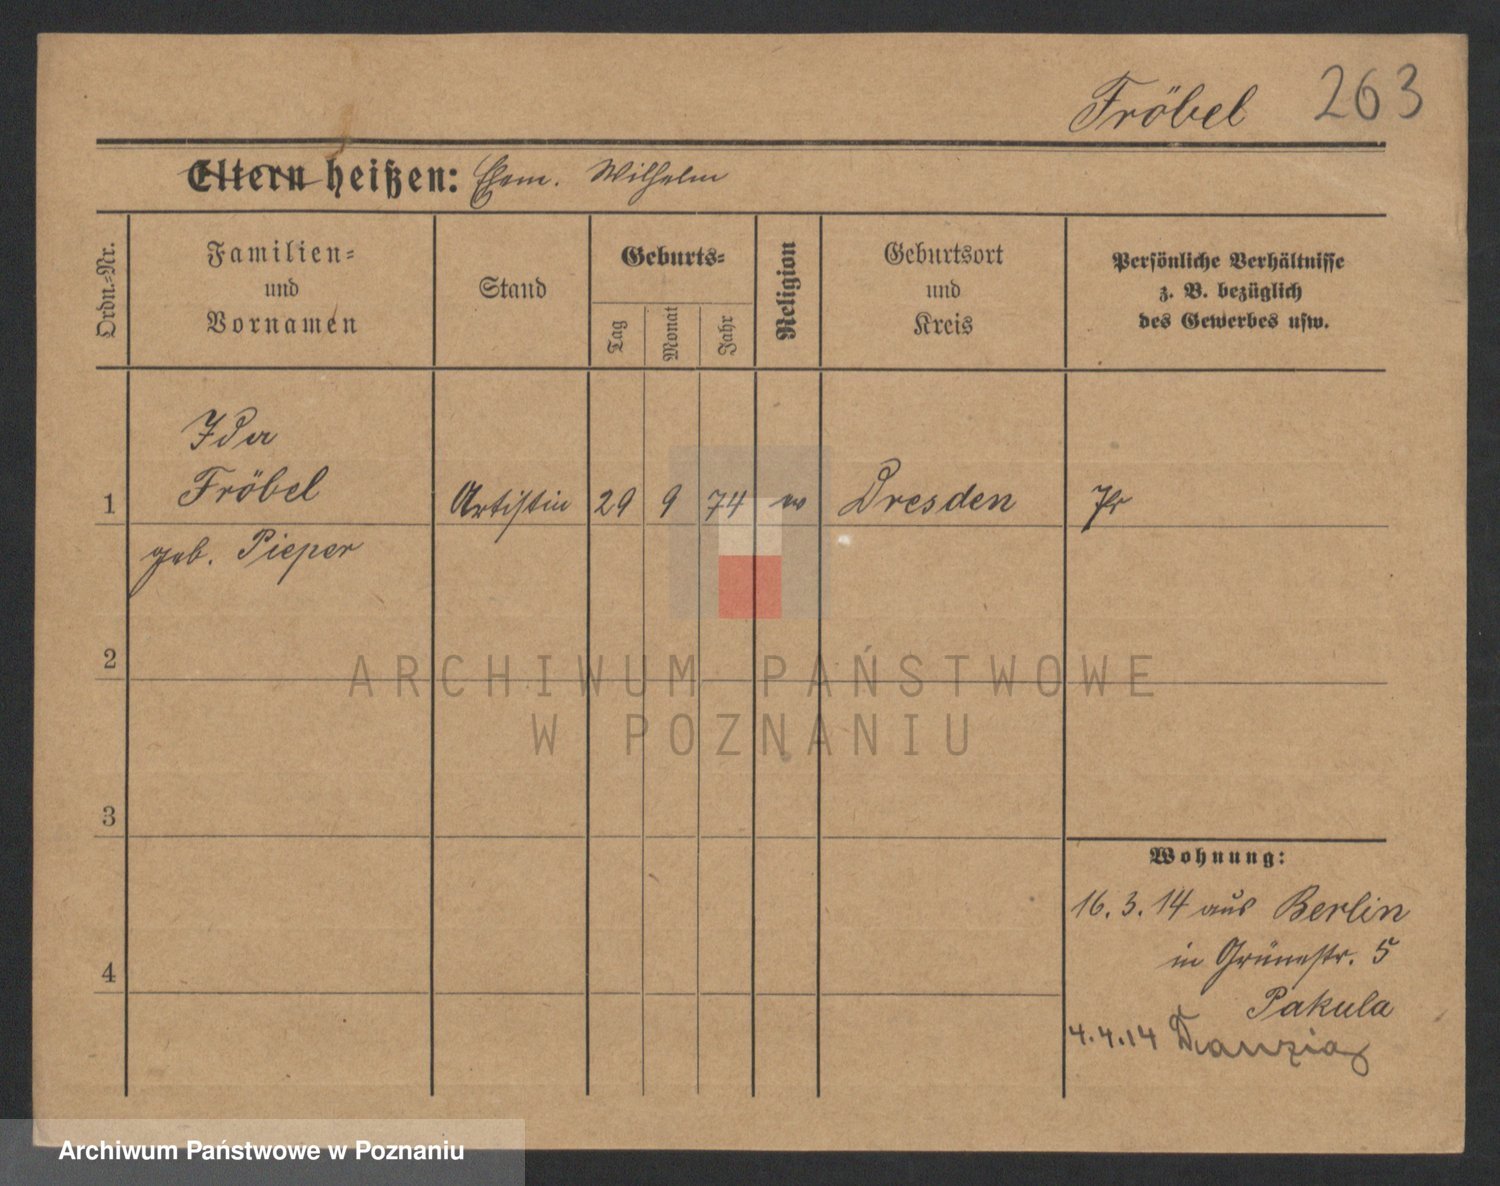 Fröbel 263
Eltern heißen: Ehem. Wilhelm
Ordn.-Nr.
Familien-
und
Vornamen
Stand
Geburts-
Tag
Monat
Jahr
Religion
Geburtsort
und
Kreis
Persönliche Verhältnisse
z. B. bezüglich
des Gewerbes usw.
Ida
Fröbel
1 Artistin 29 9 74 Dresden Pr
geb. Pieper
2
ARCHIWUM PAŃSTWOWE
W POZNANIU
3
Wohnung:
16.3.14 aus Berlin
in Grünestr. 5
4
Pakula
4.4.14 Danzig
Archiwum Państwowe w Poznaniu